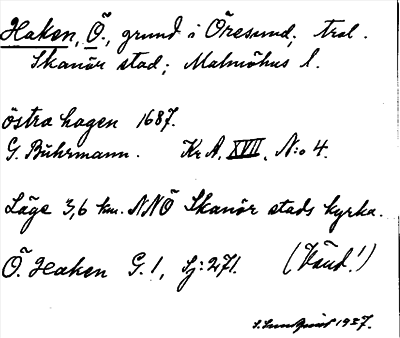 Haken, Ö., grund i Öresund, tral.
Skanör stad; Malmöhus l.
östra hagen 1687.
G. Buhrmann. Kr A, XVII, N:o 4.
Läge 3,6 km. NNÖ Skanör stads kyrka.
Ö. Haken G. 1, Sj: 271. (Vänd!)
S. Lundquist 1927.